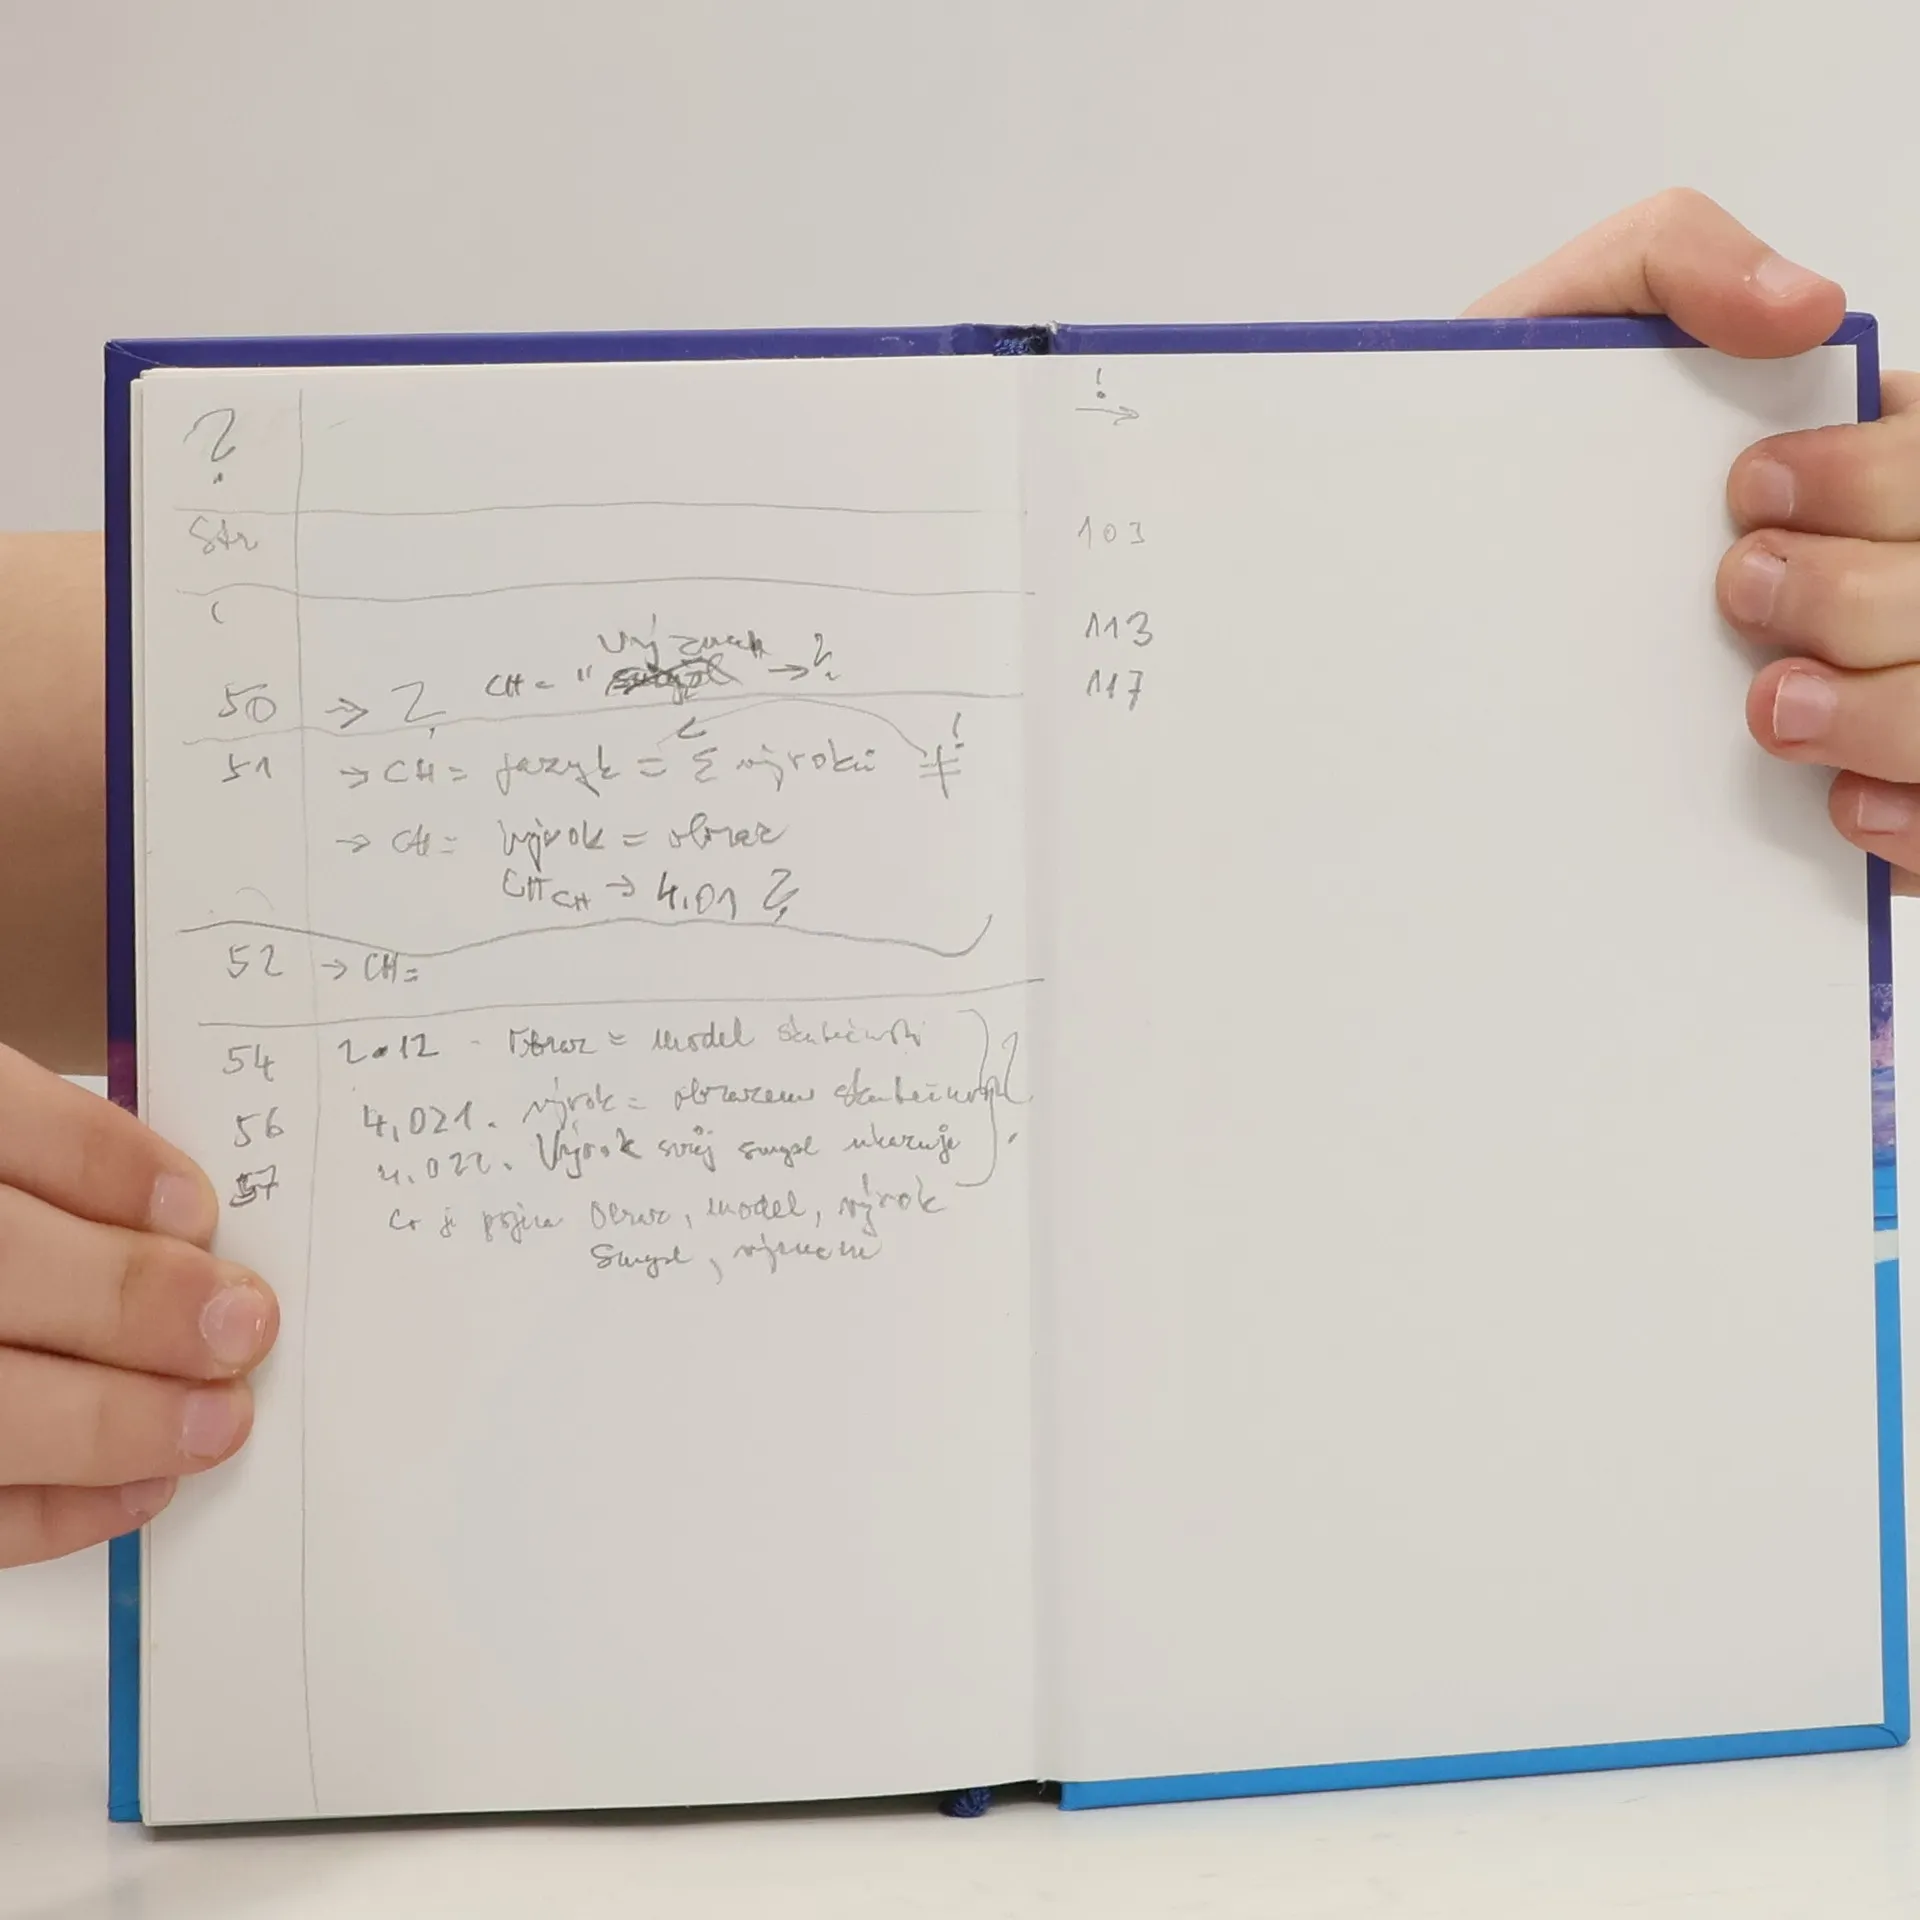 ?
Str
význam
50 → ? CH = " → ?
51 → CH = jazyk = Σ výroků ≠ !
→ CH = výrok = obraz
CH CH → 4.01 ?
52 → CH =
54 2.12 - Obraz = model skutečnosti
56 4,021. výrok = obrazem skutečnosti
57 4.022. Výrok svůj smysl ukazuje
?
Co je pojem obraz, model, výrok
smysl, význam
!
→
103
113
117